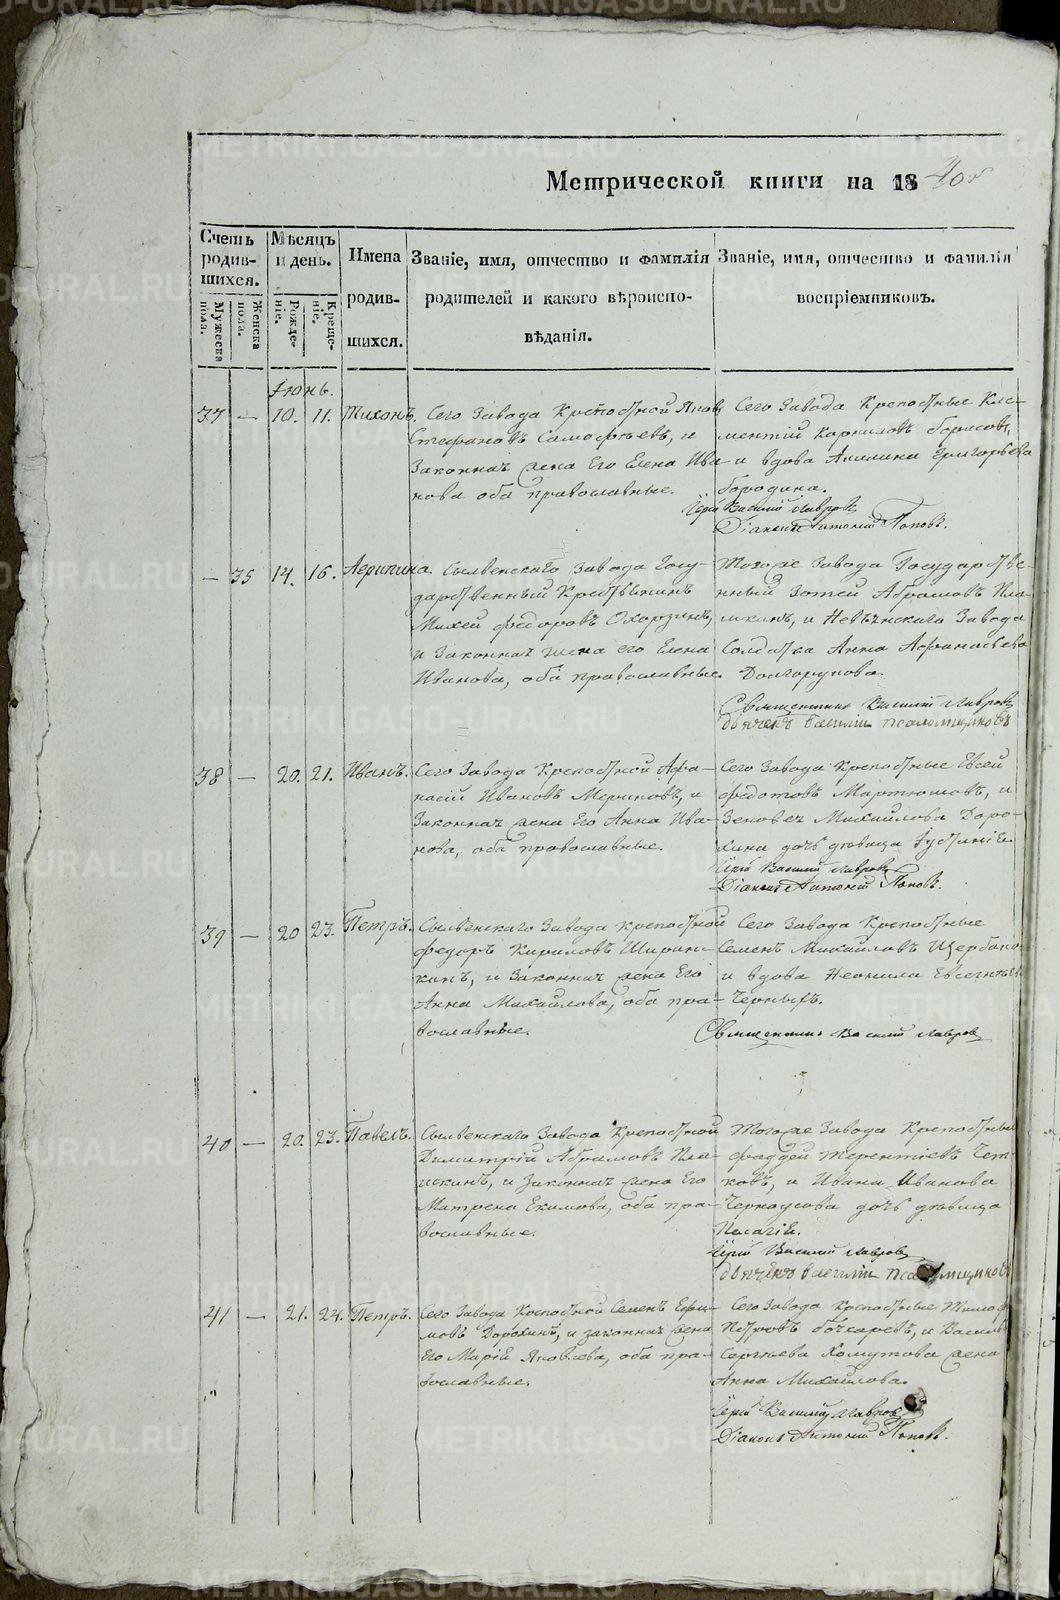 Метрической книги на 1840г
Счетъ родившихся.
Мужеска пола.
Женска пола.
Мѣсяцъ и день.
Рожденіе.
Крещеніе.
Имена родившихся.
Званіе, имя, отчество и фамилія
родителей и какого вѣроиспо-
вѣданія.
Званіе, имя, отчество и фамилія
воспріемниковъ.
Іюнь.
37 — 10. 11. Тихонъ.
Сего Завода Крепостной Яковъ
Стефановъ, и
Законная жена Его Елена Ива-
нова оба православные.
Сего Завода Крепостные Кле-
ментій Корниловъ Борисовъ,
и вдова Акилина Григорьева
Бородина.
Іерей Василий Лавровъ
Діаконъ Антоній Поповъ.
— 35 14. 16. Агрипина.
Сылвенскаго Завода Госу-
дарственный Крестьянинъ
Михей Федоровъ
и Законная жена его Елена
Иванова, оба православные.
Тогоже Завода Государстве-
нный Зотей Абрамовъ Пла-
и Невьянскаго Завода
Солдатка Анна Афанасьева
Долгорукова.
Священникъ Василий Лавровъ
Дьячекъ Василии Псаломщиковъ
38 — 20. 21. Иванъ.
Сего Завода Крепостной Афа-
насій Ивановъ Мериновъ, и
Законная жена Его Анна Ива-
нова, оба православные.
Сего Завода Крепостные Евсей
Федотовъ Мартюшовъ, и
Михайлова Доро-
хина дочь дѣвица
Іерей Василий Лавровъ
Діаконъ Антоній Поповъ.
39 — 20 23. Петръ.
Сылвенскаго Завода крепостной
Федоръ Кириловъ Ширин-
кинъ, и Законная жена Его
Анна Михайлова, оба пра-
вославные.
Сего Завода Крепостные
Семенъ Михайловъ Щербако
и вдова Неонила
Черныхъ.
Священникъ Василий Лавровъ
40 — 20. 23. Павелъ.
Сылвенскаго Завода Крепостной
Димитрій Абрамовъ Пла-
и Законная жена Его
Матрена Екимова, оба пра-
вославные.
Тогоже Завода Крепостные
Фаддей Терентіевъ Чет-
ковъ, и Ивана Иванова
Черноусова дочь дѣвица
Пелагія.
Іерей Василий Лавровъ
Дьячекъ Василии Псаломщиковъ
41 — 21. 24. Петръ.
Сего Завода Крепостной Семенъ Ефи-
мовъ Дорохинъ, и законная жена
Его Марія Яковлева, оба пра-
вославные.
Сего Завода Крепостные Тимоф
Петровъ Бочкаревъ, и Василья
Сергѣева Хомутова жена
Анна Михайлова.
Іерей Василий Лавровъ
Діаконъ Антоній Поповъ.
METRIKI.GASO-URAL.RU